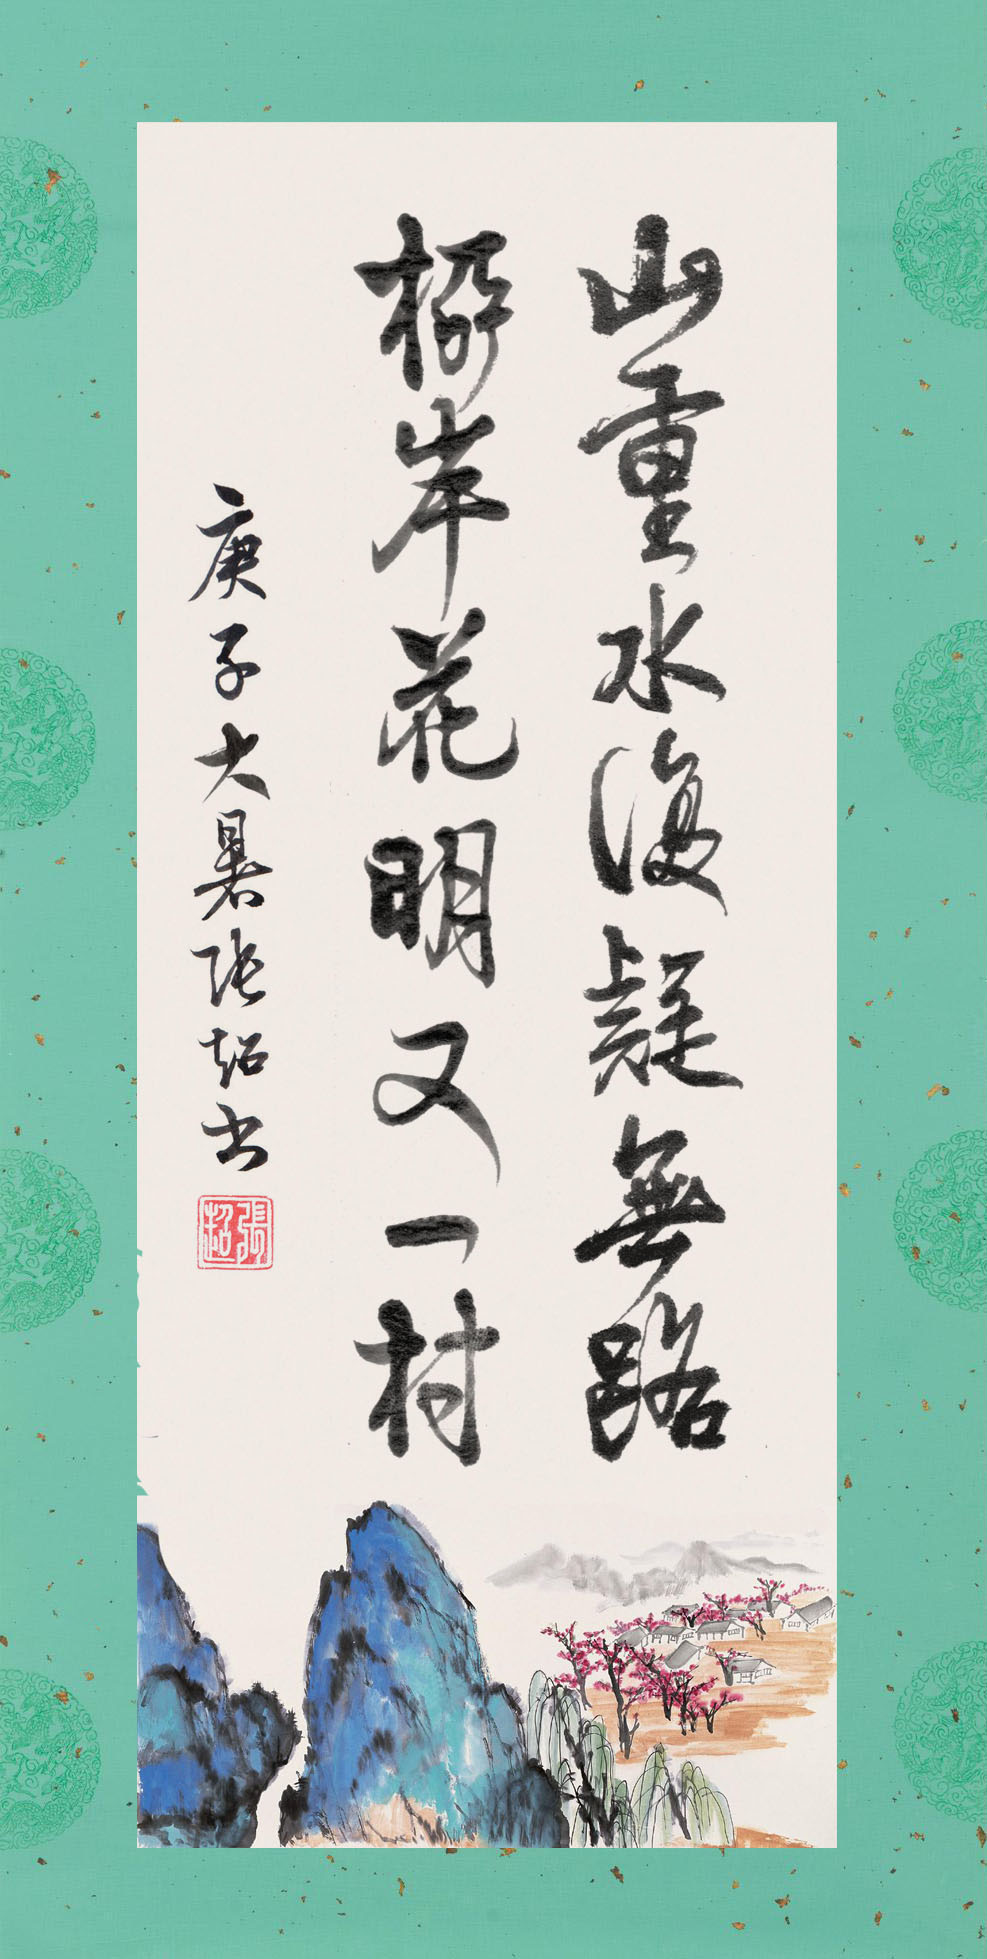 山重水復疑無路
柳岸花明又一村
庚子大暑张超书
張超